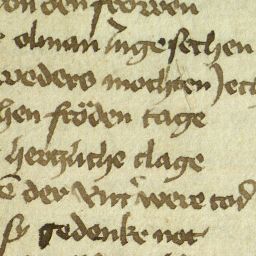 von den frowen
olman Ungesechen
weders mochten ) ett
hen fröden tage
hertzliche clage
der Ritter were tod
sy gedenke not